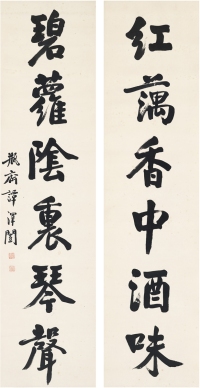 红藕香中酒味
碧蘿陰裏琴聲
瓶齋譚澤闓